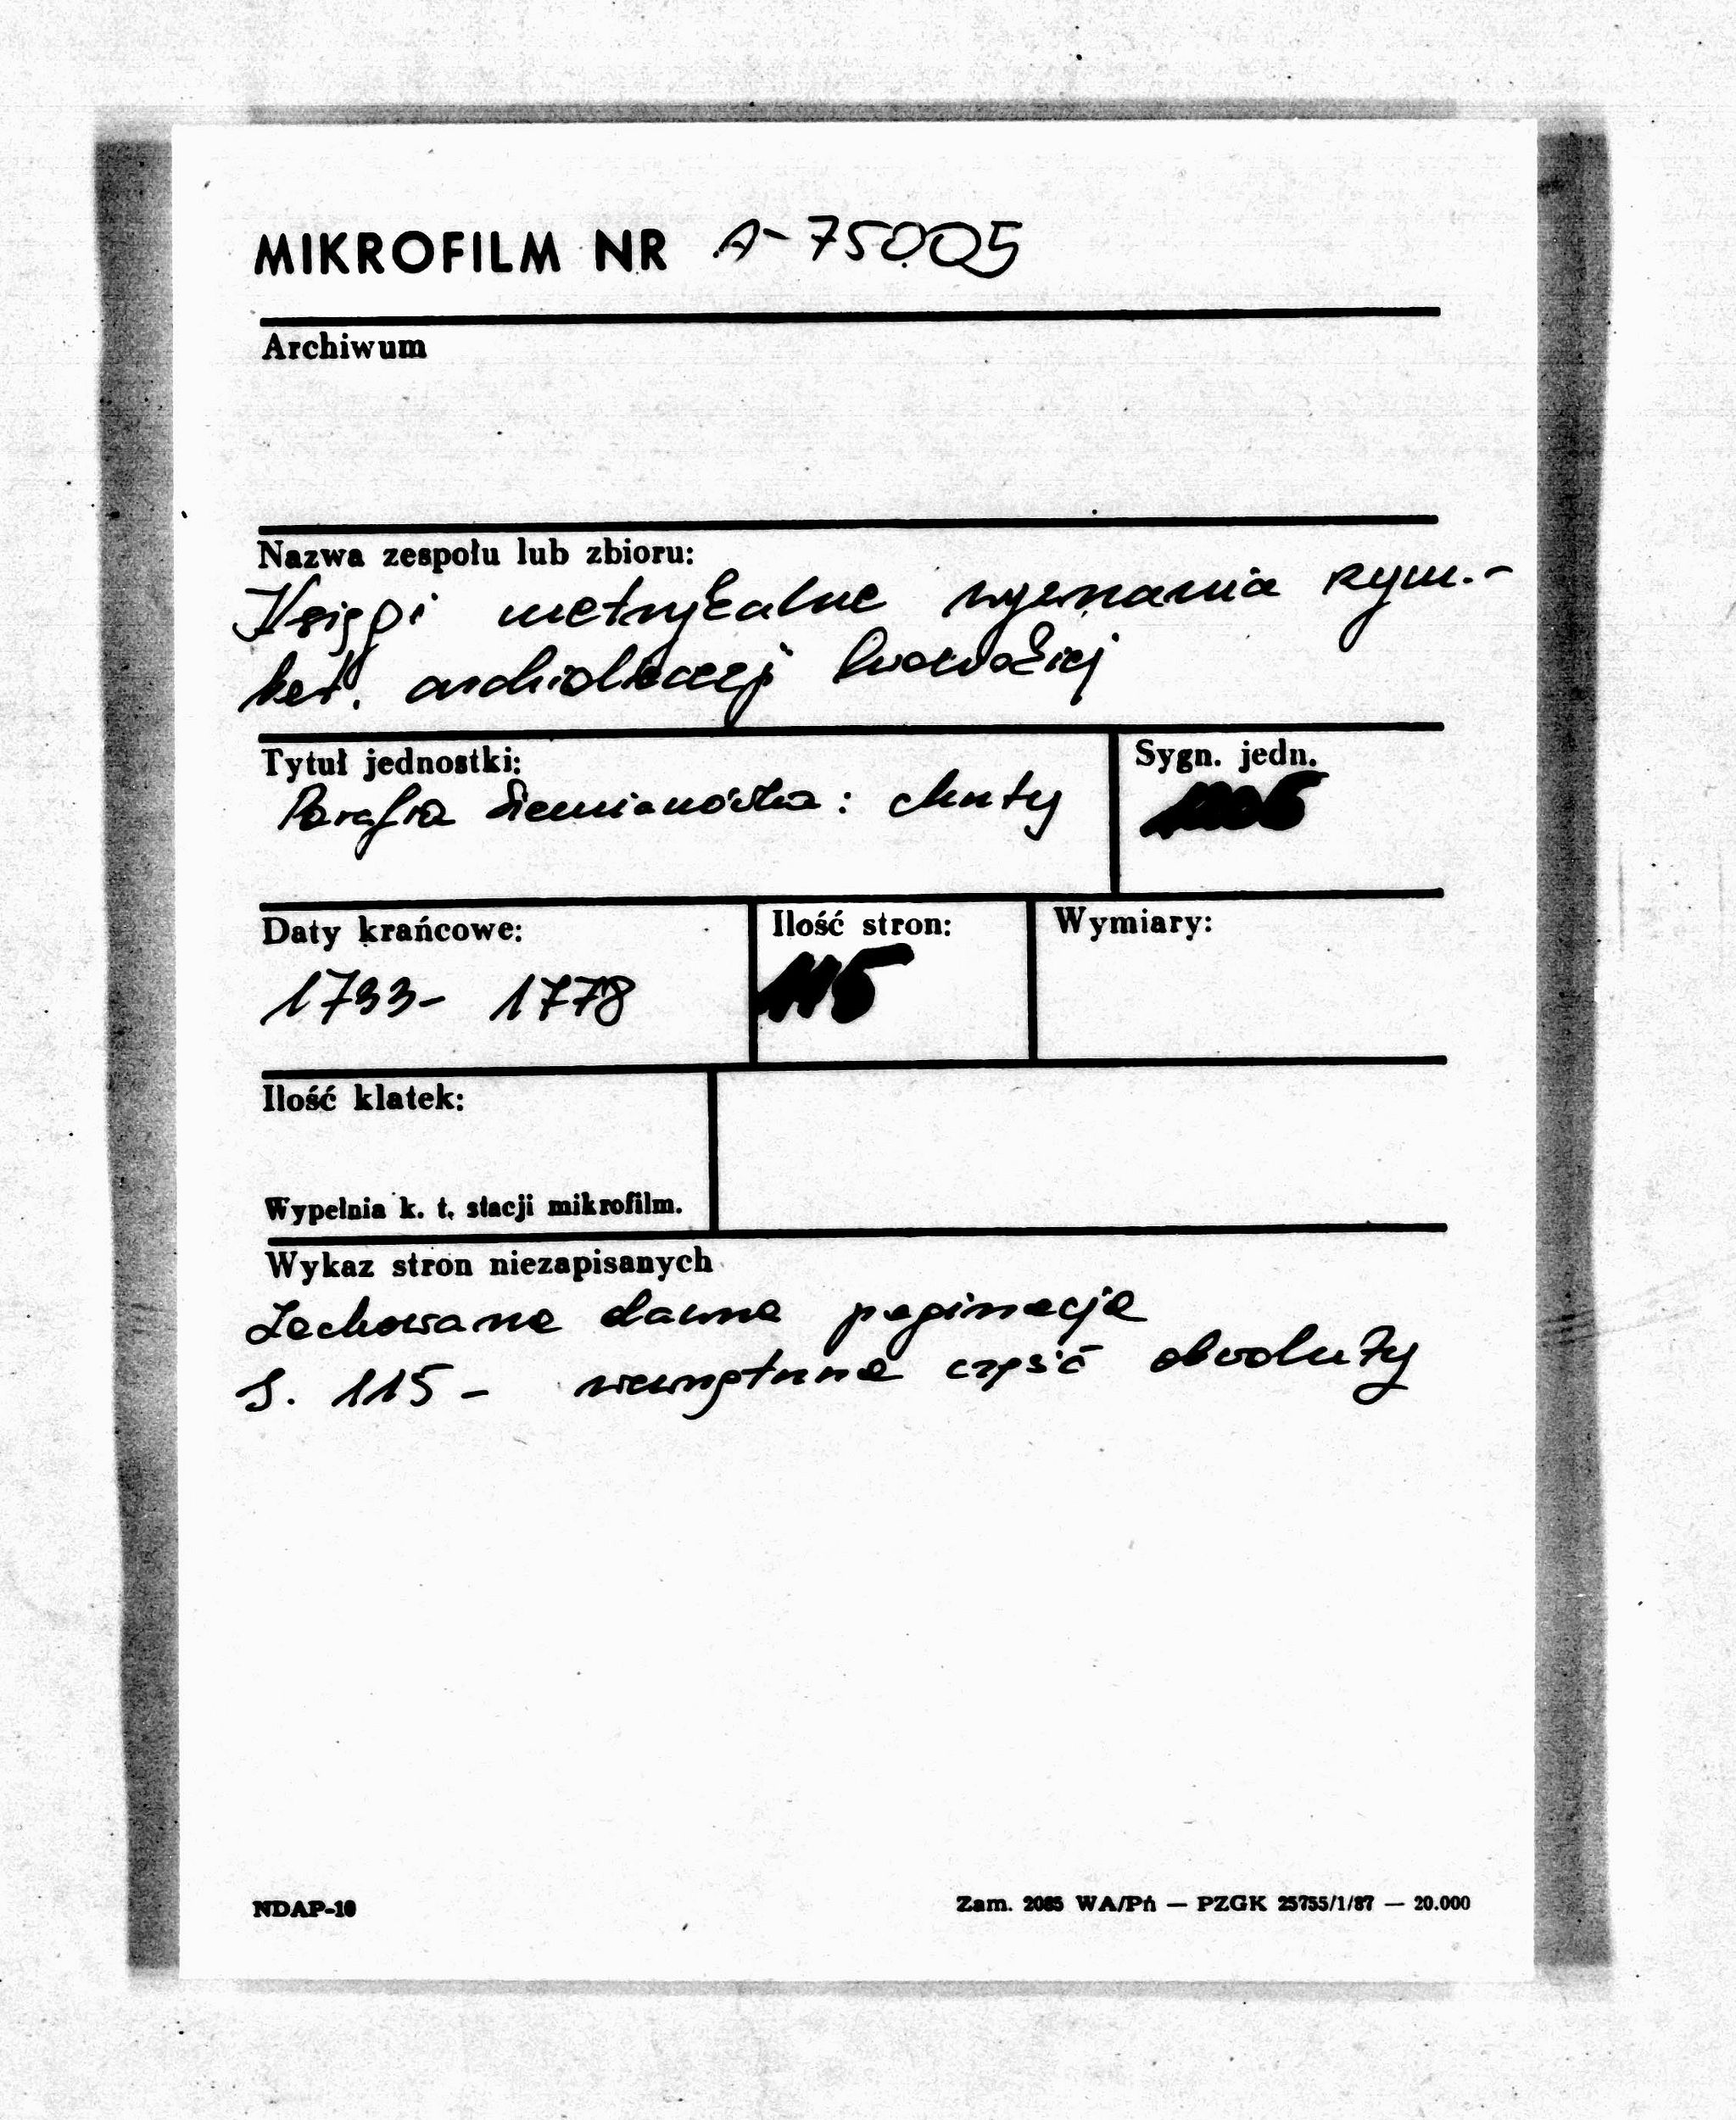 MIKROFILM NR A-75005
Archiwum
Nazwa zespołu lub zbioru:
Księgi metrykalne wyznania rzym.-
kat. archidiecezji lwowskiej
Tytuł jednostki:
Parafia Siemianówka: chrzty
Sygn. jedn.
Daty krańcowe:
1733- 1778
Ilość stron:
115
Wymiary:
Ilość klatek:
Wypełnia k. t. stacji mikrofilm.
Wykaz stron niezapisanych
Zachowano dawną paginację
S. 115 - wewnętrzna część obwoluty
NDAP-10
Zam. 2085 WA/Pń — PZGK 25755/1/87 — 20.000